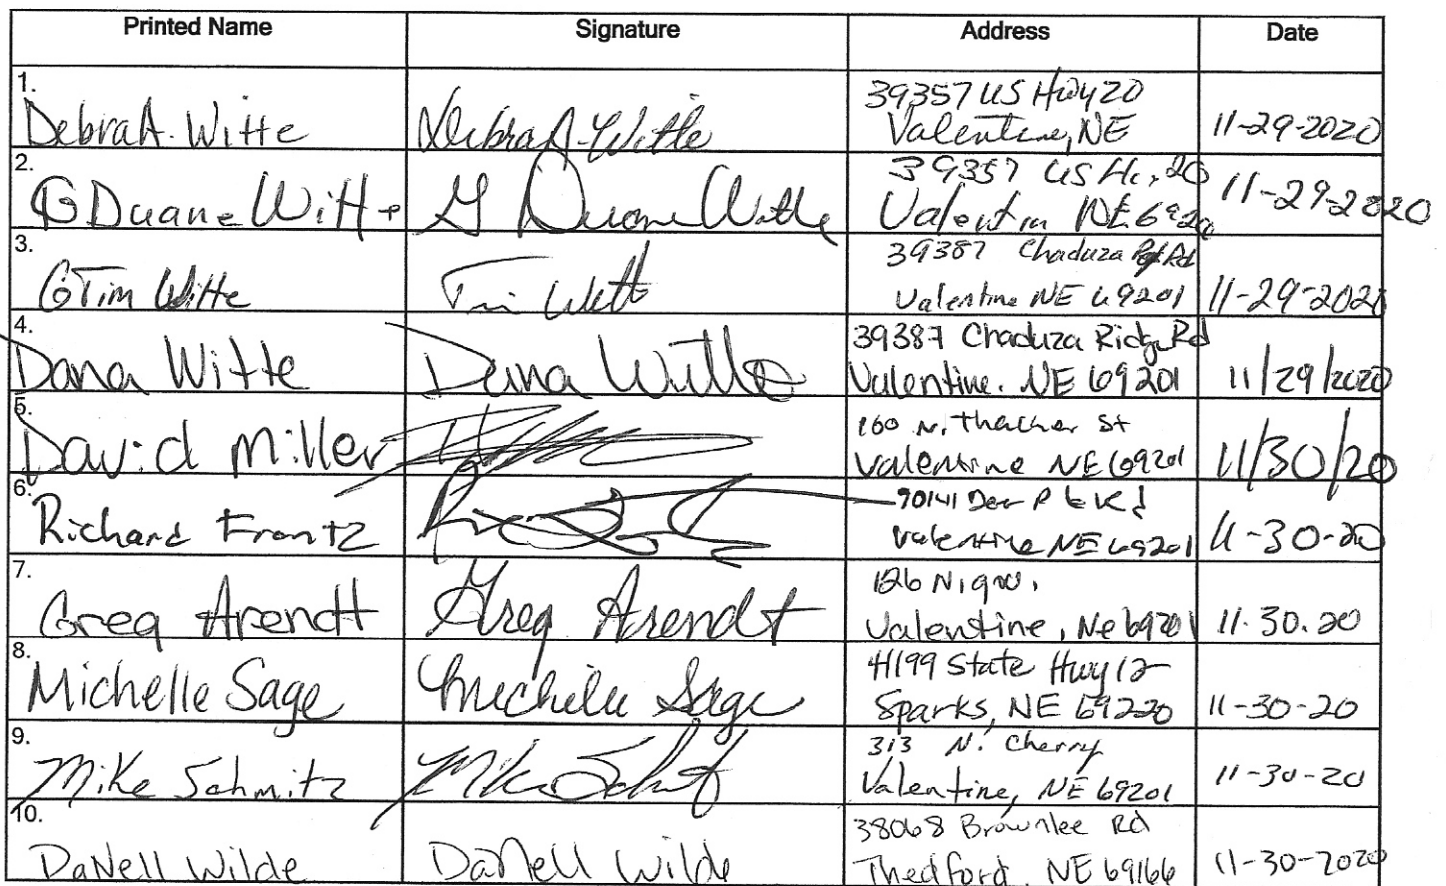 Printed Name Signature Address Date
1.
Debra A. Witte Debra A. Witte 39357 US Hwy 20
Valentine, NE 11-29-2020
2.
G Duane Witte G Duane Witte 39357 US Hw. 20
Valentin NE 6920 11-29-2020
3.
G Tim Witte Tim Witt 39387 Chaduza Rd
Valentine NE 69201 11-29-2020
4.
Dana Witte Dana Witte 39387 Chaduza Ridge Rd
Valentine. NE 69201 11/29/2020
5.
David Miller 160 N. Thacher St
Valentine NE 69201 11/30/20
6.
Richard Frantz Rd
Valentine NE 69201 11-30-20
7.
Greg Arendt Greg Arendt 126 N.
Valentine, Ne 69201 11.30.20
8.
Michelle Sage Michelle Sage 41199 State Hwy 12
Sparks, NE 69220 11-30-20
9.
Mike Schmitz Mike 313 N. Cherry
Valentine, NE 69201 11-30-20
10.
DaNell Wilde DaNell Wilde 38068 Brownlee Rd
Thedford, NE 69166 11-30-2020